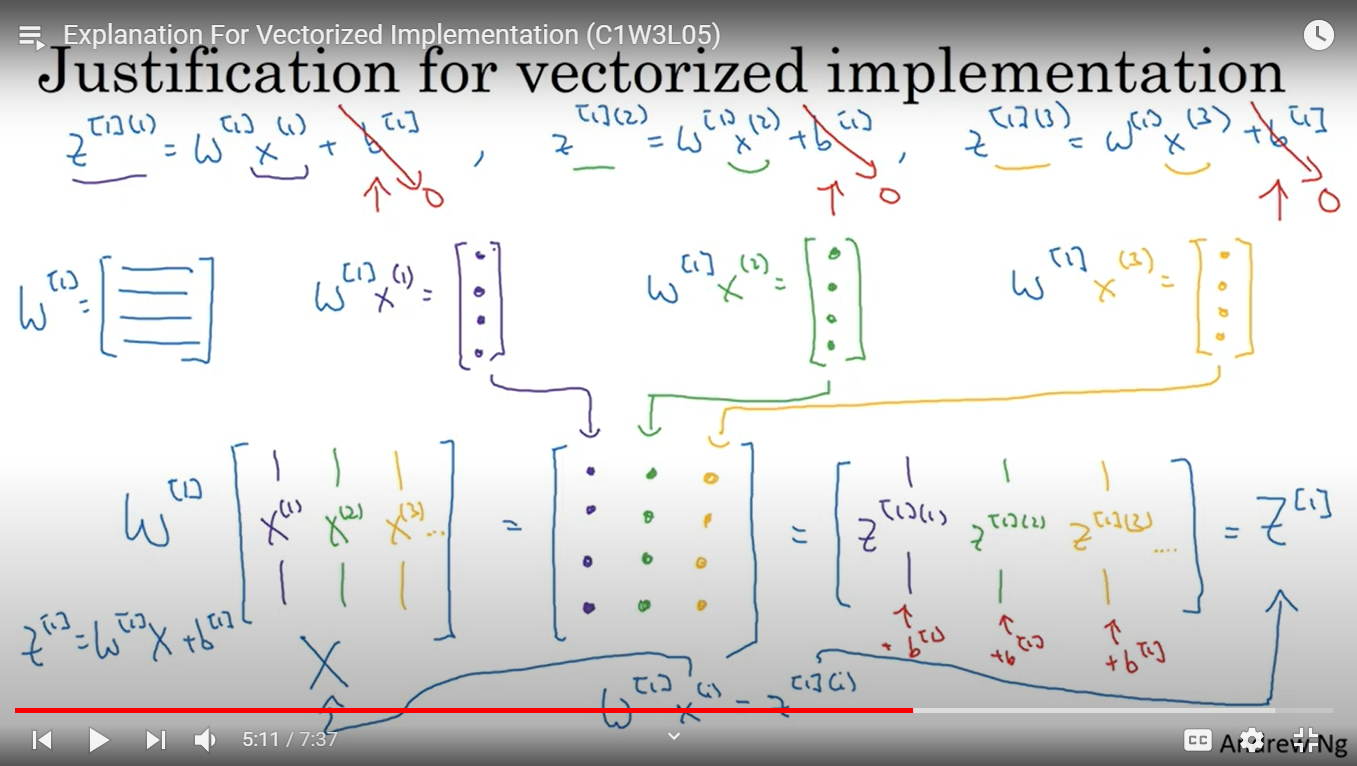 Explanation For Vectorized Implementation (C1W3L05)
Justification for vectorized implementation
z^[1](1) = W^[1] x^(1) + b^[1] , z^[1](2) = W^[1] x^(2) + b^[1] , z^[1](3) = W^[1] x^(3) + b^[1]
↑ 0 ↑ 0 ↑ 0
W^[1] = [ ] W^[1] x^(1) = [ ] W^[1] x^(2) = [ ] W^[1] x^(3) = [ ]
W^[1] [ x^(1) x^(2) x^(3) ... ] = [ ] = [ z^[1](1) z^[1](2) z^[1](3) .... ] = Z^[1]
+ b^[1] + b^[1] + b^[1]
Z^[1] = W^[1] X + b^[1]
X
W^[1] x^(i) = z^[1](i)
5:11 / 7:37
CC
Andrew Ng